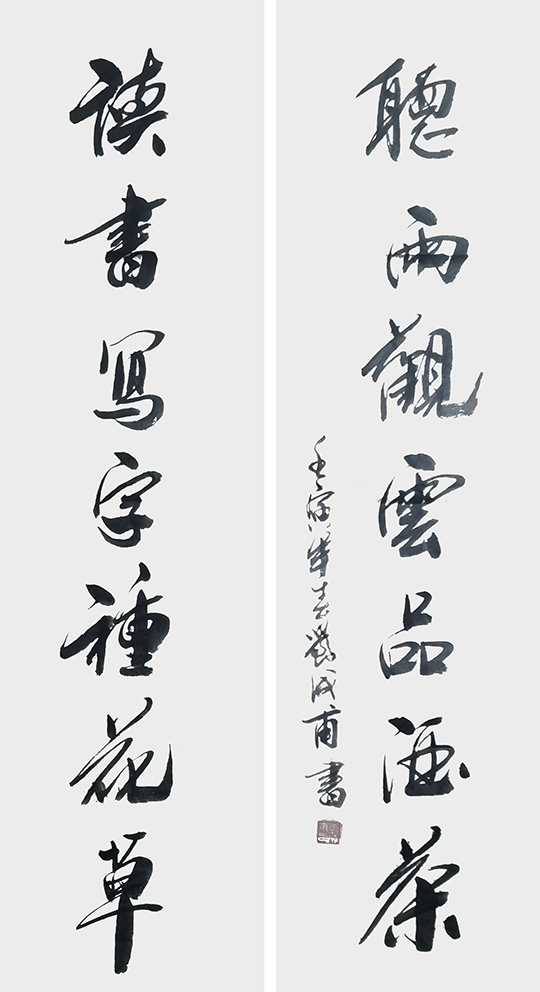 讀書寫字種花草
聽雨觀雲品酒茶
壬寅 甫書